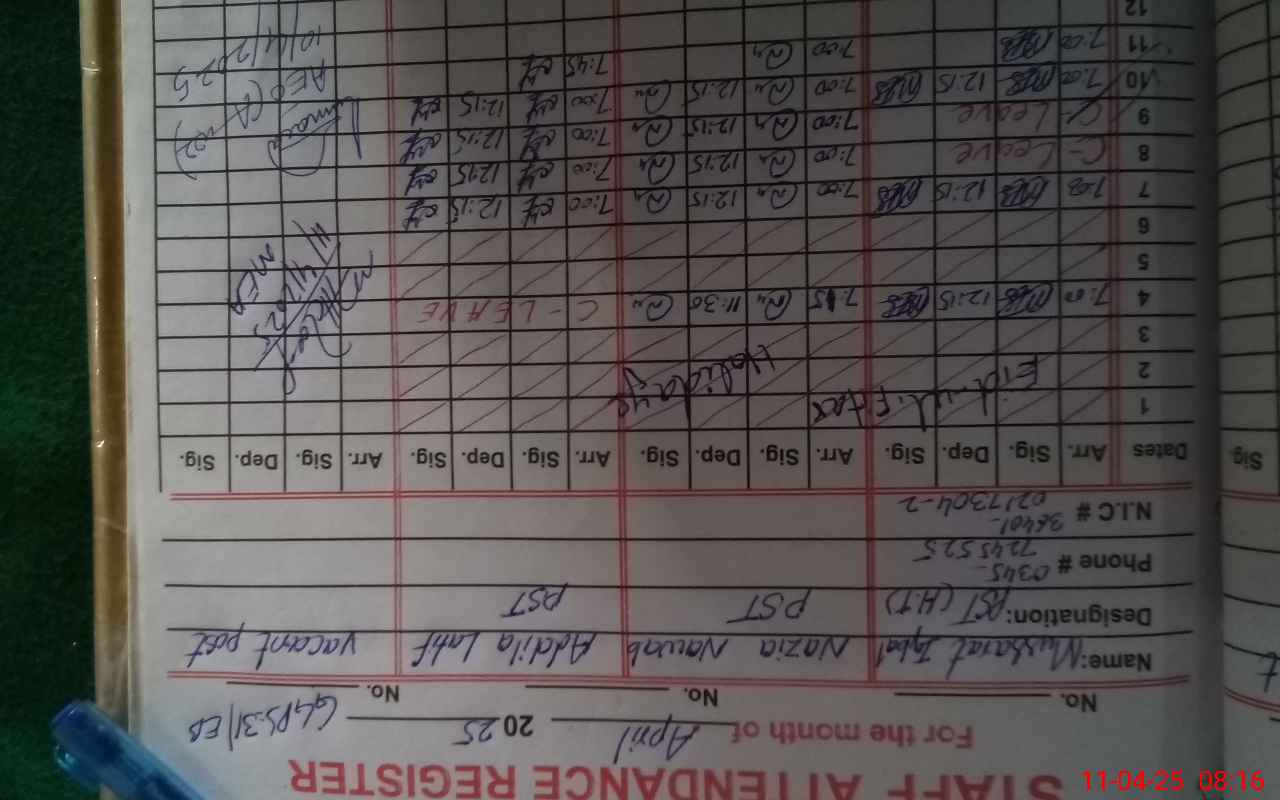 STAFF ATTENDANCE REGISTER
For the month of April 2025 GGPS.31/EB
No. No. No. No.
Name: Mussarat Iqbal Nazia Nawab Addila Latif vacant post
Designation: PST (H.T) PST PST
Phone # 0345-
7245525
N.I.C # 36401-
0217304-2
Dates Arr. Sig. Dep. Sig. Arr. Sig. Dep. Sig. Arr. Sig. Dep. Sig. Arr. Sig. Dep. Sig.
1 Eid-ul-Fitar Holidays
2
3
4 7:00 12:15 7:15 11:30 C-LEAVE
5
6
7 7:00 12:15 7:00 12:15 7:00 12:15
8 C-Leave 7:00 12:15 7:00 12:15
9 C-Leave 7:00 12:15 7:00 12:15
10 7:00 12:15 7:00 12:15 7:00 12:15
11 7:00 7:00 7:45
12
11/4/2025
MEA
AEO
10/4/2025
Sig.
11-04-25 08:16